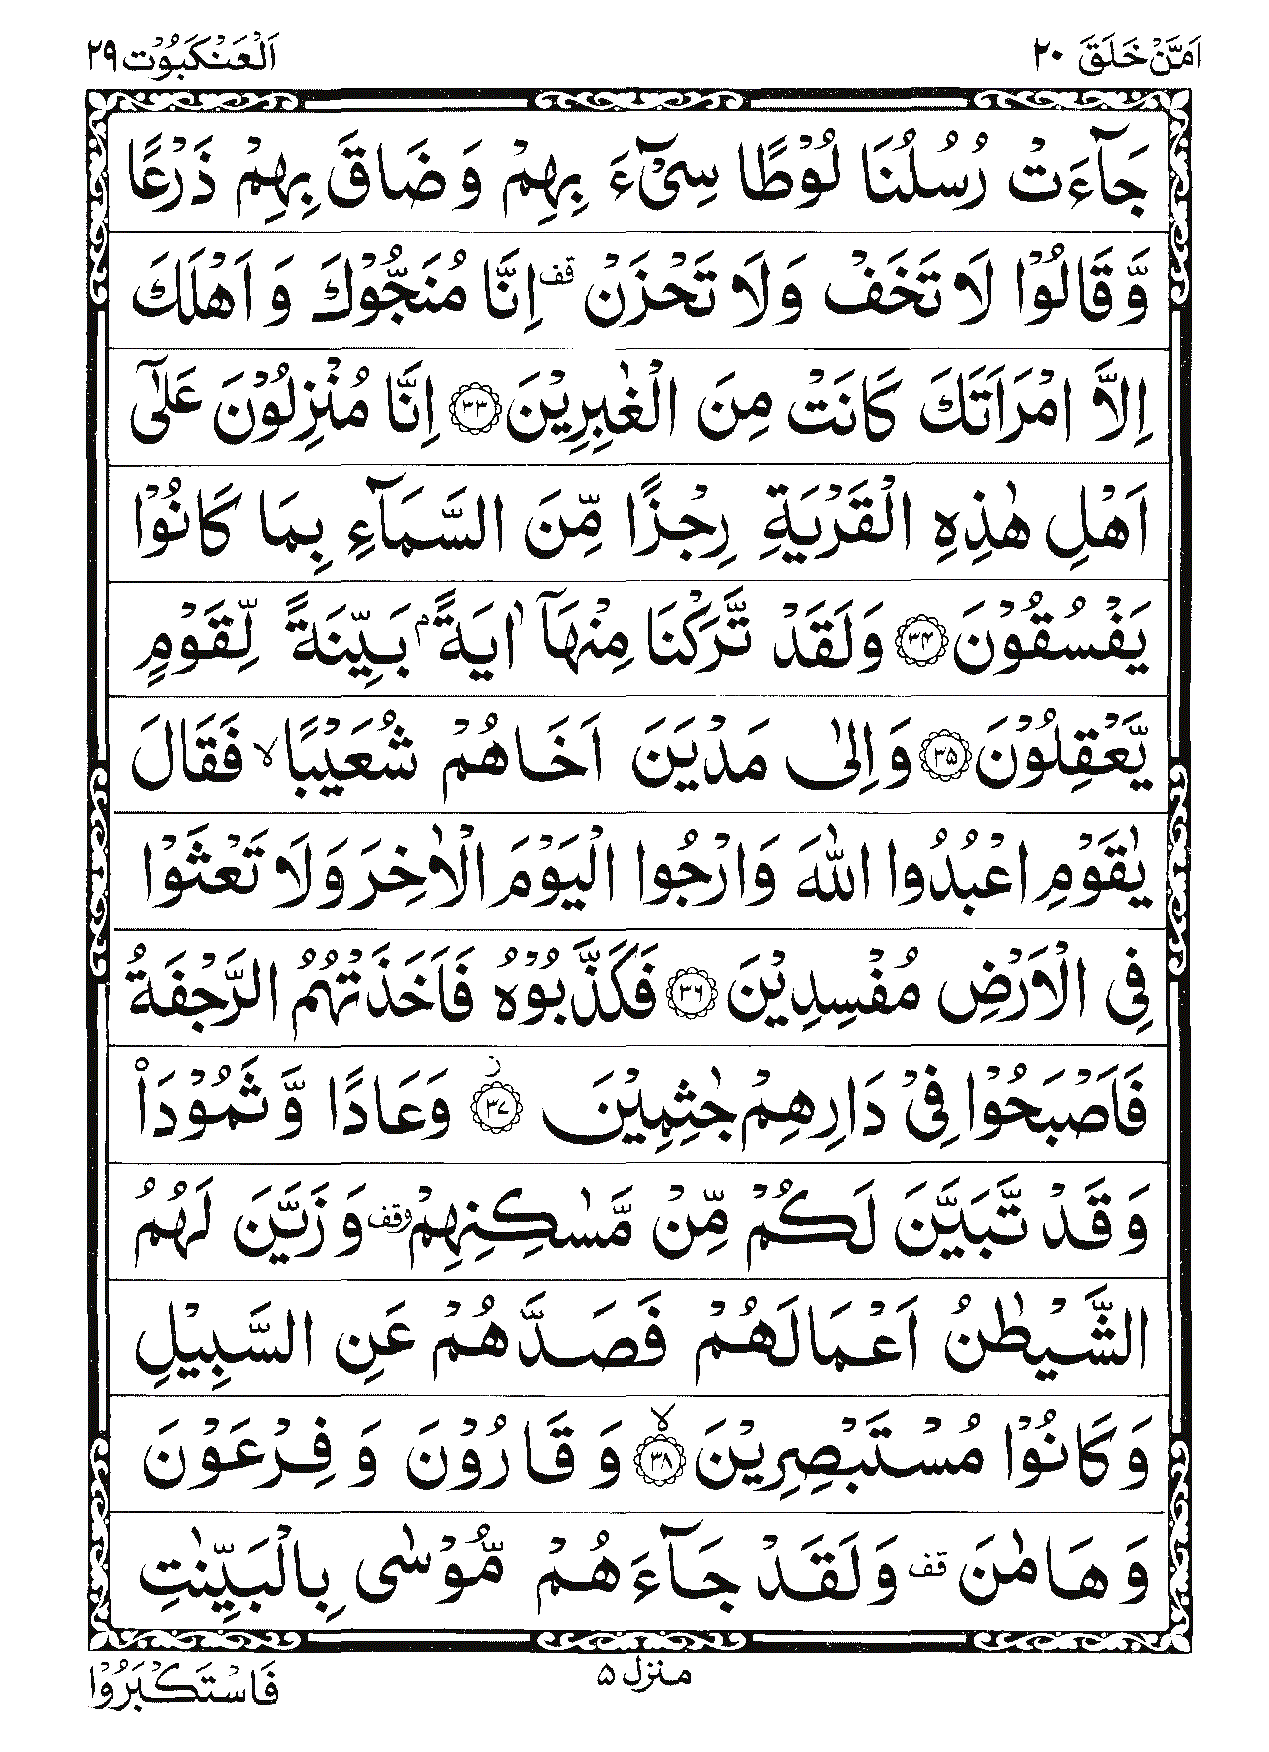 اَمَّنْ خَلَقَ ٢٠
اَلْعَنْكَبُوْت ٢٩
جَآءَتْ رُسُلُنَا لُوْطًا سِیْٓءَ بِهِمْ وَ ضَاقَ بِهِمْ ذَرْعًا
وَّ قَالُوْا لَا تَخَفْ وَ لَا تَحْزَنْ قف اِنَّا مُنَجُّوْكَ وَ اَهْلَكَ
اِلَّا امْرَاَتَكَ كَانَتْ مِنَ الْغٰبِرِیْنَ ۝۳۳ اِنَّا مُنْزِلُوْنَ عَلٰۤی
اَهْلِ هٰذِهِ الْقَرْیَةِ رِجْزًا مِّنَ السَّمَآءِ بِمَا كَانُوْا
یَفْسُقُوْنَ ۝۳۴ وَ لَقَدْ تَّرَكْنَا مِنْهَاۤ اٰیَةًۢ بَیِّنَةً لِّقَوْمٍ
یَّعْقِلُوْنَ ۝۳۵ وَ اِلٰی مَدْیَنَ اَخَاهُمْ شُعَیْبًا ۙ فَقَالَ
یٰقَوْمِ اعْبُدُوا اللّٰهَ وَ ارْجُوا الْیَوْمَ الْاٰخِرَ وَ لَا تَعْثَوْا
فِی الْاَرْضِ مُفْسِدِیْنَ ۝۳۶ فَكَذَّبُوْهُ فَاَخَذَتْهُمُ الرَّجْفَةُ
فَاَصْبَحُوْا فِیْ دَارِهِمْ جٰثِمِیْنَ ؗ ۝۳۷ وَ عَادًا وَّ ثَمُوْدَا۠
وَ قَدْ تَّبَیَّنَ لَكُمْ مِّنْ مَّسٰكِنِهِمْ وقف وَ زَیَّنَ لَهُمُ
الشَّیْطٰنُ اَعْمَالَهُمْ فَصَدَّهُمْ عَنِ السَّبِیْلِ
وَ كَانُوْا مُسْتَبْصِرِیْنَ ۙ ۝۳۸ وَ قَارُوْنَ وَ فِرْعَوْنَ
وَ هَامٰنَ قف وَ لَقَدْ جَآءَهُمْ مُّوْسٰی بِالْبَیِّنٰتِ
منزل ۵
فَاسْتَكْبَرُوْا